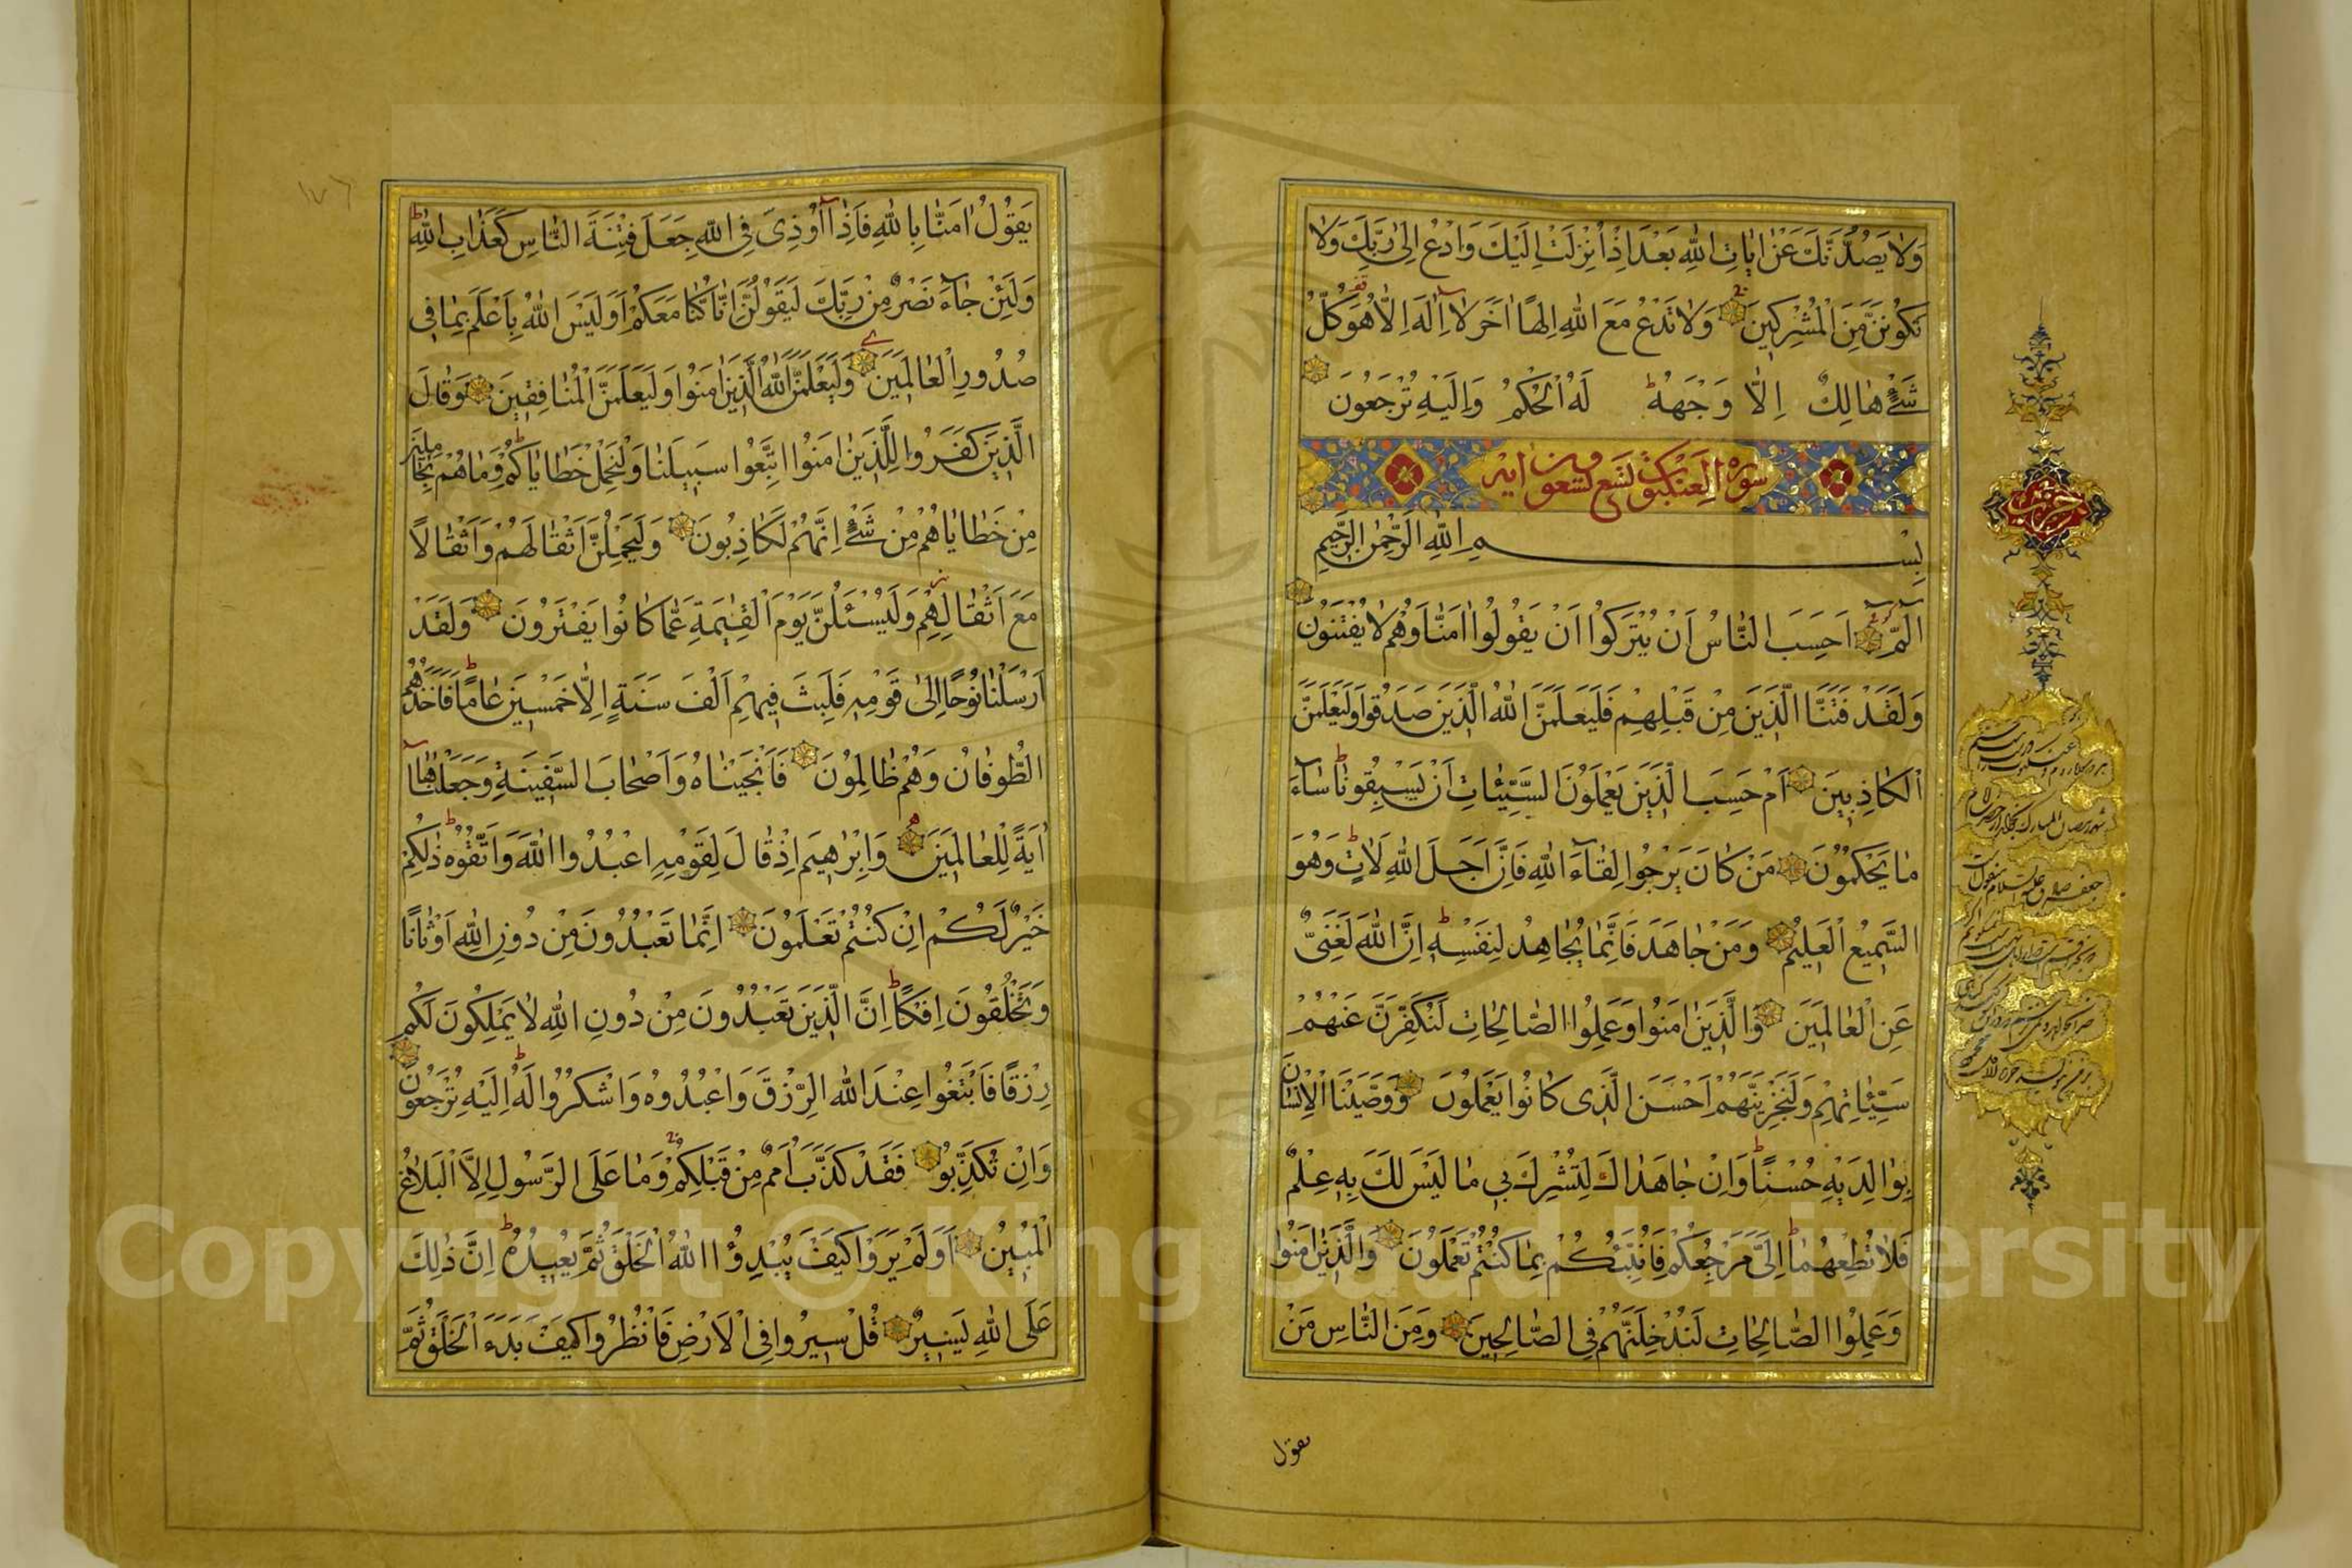 وَلَا يَصُدُّنَّكَ عَنْ اٰيَاتِ اللّٰهِ بَعْدَ اِذْ اُنْزِلَتْ اِلَيْكَ وَادْعُ اِلٰى رَبِّكَ وَلَا
تَكُونَنَّ مِنَ الْمُشْرِكِينَ وَلَا تَدْعُ مَعَ اللّٰهِ اِلٰهًا اٰخَرَ لَا اِلٰهَ اِلَّا هُوَ كُلُّ
شَيْءٍ هَالِكٌ اِلَّا وَجْهَهُ لَهُ الْحُكْمُ وَاِلَيْهِ تُرْجَعُونَ
سورة العنكبوت تسع وستون اية
بِسْمِ اللّٰهِ الرَّحْمٰنِ الرَّحِيمِ
الٓمّٓ اَحَسِبَ النَّاسُ اَنْ يُتْرَكُوا اَنْ يَقُولُوا اٰمَنَّا وَهُمْ لَا يُفْتَنُونَ
وَلَقَدْ فَتَنَّا الَّذِينَ مِنْ قَبْلِهِمْ فَلَيَعْلَمَنَّ اللّٰهُ الَّذِينَ صَدَقُوا وَلَيَعْلَمَنَّ
الْكَاذِبِينَ اَمْ حَسِبَ الَّذِينَ يَعْمَلُونَ السَّيِّئَاتِ اَنْ يَسْبِقُونَا سَآءَ
مَا يَحْكُمُونَ مَنْ كَانَ يَرْجُوا لِقَآءَ اللّٰهِ فَاِنَّ اَجَلَ اللّٰهِ لَاٰتٍ وَهُوَ
السَّمِيعُ الْعَلِيمُ وَمَنْ جَاهَدَ فَاِنَّمَا يُجَاهِدُ لِنَفْسِهِ اِنَّ اللّٰهَ لَغَنِيٌّ
عَنِ الْعَالَمِينَ وَالَّذِينَ اٰمَنُوا وَعَمِلُوا الصَّالِحَاتِ لَنُكَفِّرَنَّ عَنْهُمْ
سَيِّئَاتِهِمْ وَلَنَجْزِيَنَّهُمْ اَحْسَنَ الَّذِي كَانُوا يَعْمَلُونَ وَوَصَّيْنَا الْاِنْسَانَ
بِوَالِدَيْهِ حُسْنًا وَاِنْ جَاهَدَاكَ لِتُشْرِكَ بِي مَا لَيْسَ لَكَ بِهِ عِلْمٌ
فَلَا تُطِعْهُمَا اِلَيَّ مَرْجِعُكُمْ فَاُنَبِّئُكُمْ بِمَا كُنْتُمْ تَعْمَلُونَ وَالَّذِينَ اٰمَنُوا
وَعَمِلُوا الصَّالِحَاتِ لَنُدْخِلَنَّهُمْ فِي الصَّالِحِينَ وَمِنَ النَّاسِ مَنْ
يقول
حزب
يَقُولُ اٰمَنَّا بِاللّٰهِ فَاِذَا اُوذِيَ فِي اللّٰهِ جَعَلَ فِتْنَةَ النَّاسِ كَعَذَابِ اللّٰهِ
وَلَئِنْ جَآءَ نَصْرٌ مِنْ رَبِّكَ لَيَقُولُنَّ اِنَّا كُنَّا مَعَكُمْ اَوَلَيْسَ اللّٰهُ بِاَعْلَمَ بِمَا فِي
صُدُورِ الْعَالَمِينَ وَلَيَعْلَمَنَّ اللّٰهُ الَّذِينَ اٰمَنُوا وَلَيَعْلَمَنَّ الْمُنَافِقِينَ وَقَالَ
الَّذِينَ كَفَرُوا لِلَّذِينَ اٰمَنُوا اتَّبِعُوا سَبِيلَنَا وَلْنَحْمِلْ خَطَايَاكُمْ وَمَا هُمْ بِحَامِلِينَ
مِنْ خَطَايَاهُمْ مِنْ شَيْءٍ اِنَّهُمْ لَكَاذِبُونَ وَلَيَحْمِلُنَّ اَثْقَالَهُمْ وَاَثْقَالًا
مَعَ اَثْقَالِهِمْ وَلَيُسْئَلُنَّ يَوْمَ الْقِيٰمَةِ عَمَّا كَانُوا يَفْتَرُونَ وَلَقَدْ
اَرْسَلْنَا نُوحًا اِلٰى قَوْمِهِ فَلَبِثَ فِيهِمْ اَلْفَ سَنَةٍ اِلَّا خَمْسِينَ عَامًا فَاَخَذَهُمُ
الطُّوفَانُ وَهُمْ ظَالِمُونَ فَاَنْجَيْنَاهُ وَاَصْحَابَ السَّفِينَةِ وَجَعَلْنَاهَا
اٰيَةً لِلْعَالَمِينَ وَاِبْرٰهِيمَ اِذْ قَالَ لِقَوْمِهِ اعْبُدُوا اللّٰهَ وَاتَّقُوهُ ذٰلِكُمْ
خَيْرٌ لَكُمْ اِنْ كُنْتُمْ تَعْلَمُونَ اِنَّمَا تَعْبُدُونَ مِنْ دُونِ اللّٰهِ اَوْثَانًا
وَتَخْلُقُونَ اِفْكًا اِنَّ الَّذِينَ تَعْبُدُونَ مِنْ دُونِ اللّٰهِ لَا يَمْلِكُونَ لَكُمْ
رِزْقًا فَابْتَغُوا عِنْدَ اللّٰهِ الرِّزْقَ وَاعْبُدُوهُ وَاشْكُرُوا لَهُ اِلَيْهِ تُرْجَعُونَ
وَاِنْ تُكَذِّبُوا فَقَدْ كَذَّبَ اُمَمٌ مِنْ قَبْلِكُمْ وَمَا عَلَى الرَّسُولِ اِلَّا الْبَلَاغُ
الْمُبِينُ اَوَلَمْ يَرَوْا كَيْفَ يُبْدِئُ اللّٰهُ الْخَلْقَ ثُمَّ يُعِيدُهُ اِنَّ ذٰلِكَ
عَلَى اللّٰهِ يَسِيرٌ قُلْ سِيرُوا فِي الْاَرْضِ فَانْظُرُوا كَيْفَ بَدَءَ الْخَلْقَ ثُمَّ
١٧٦
Copyright © King Saud University